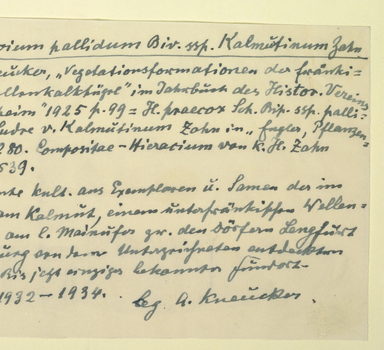 rium pallidum Biv. ssp. Kalmutinum Zahn
eucker, „Vegetationsformationen der fränki=
ellenkalkhügel", im Jahrbuch des Histor. Vereins
heim" 1925 p. 99 = H. praecox Sch. Bip. ssp. palli=
v. Kalmutinum Zahn in „Engler, Pflanzen-
280. Compositae - Hieracium von K. H. Zahn
539.
kult. aus Exemplaren u. Samen der im
am Kalmut, einem unterfränkischen Wellen=
am l. Mainufer zw. den Dörfern Lengfurt
urg von dem Unterzeichneten entdeckten
Bis jetzt einziger bekannter Fundort
1932-1934. leg. A. Kneucker.